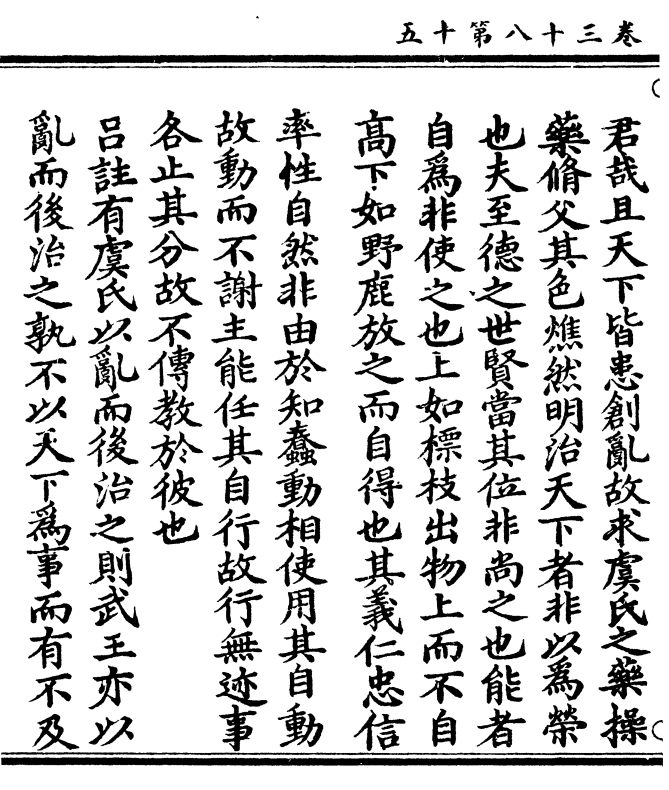 卷三十八第十五
君哉且天下皆患創亂故求虞氏之藥操
藥脩父其色燋然明治天下者非以為榮
也夫至德之世賢當其位非尚之也能者
自為非使之也上如標枝出物上而不自
高下如野鹿放之而自得也其義仁忠信
率性自然非由於知蠢動相使用其自動
故動而不謝主能任其自行故行無迹事
各止其分故不傳教於彼也
呂註有虞氏以亂而後治之則武王亦以
亂而後治之孰不以天下為事而有不及